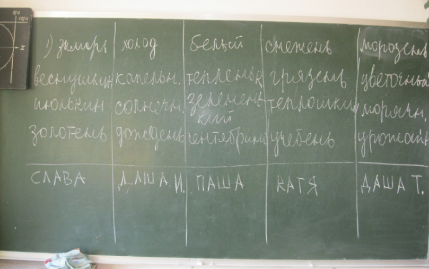 1) зимарь холод белый снежень морозень
веснушкин капельн. тепленьк грязень цветочный
июльнин солнечн. зелененький теплошкин морянн,
золотень дождень сентябрина учебень урожайн
СЛАВА ДАША И. ПАША КАТЯ ДАША Т.